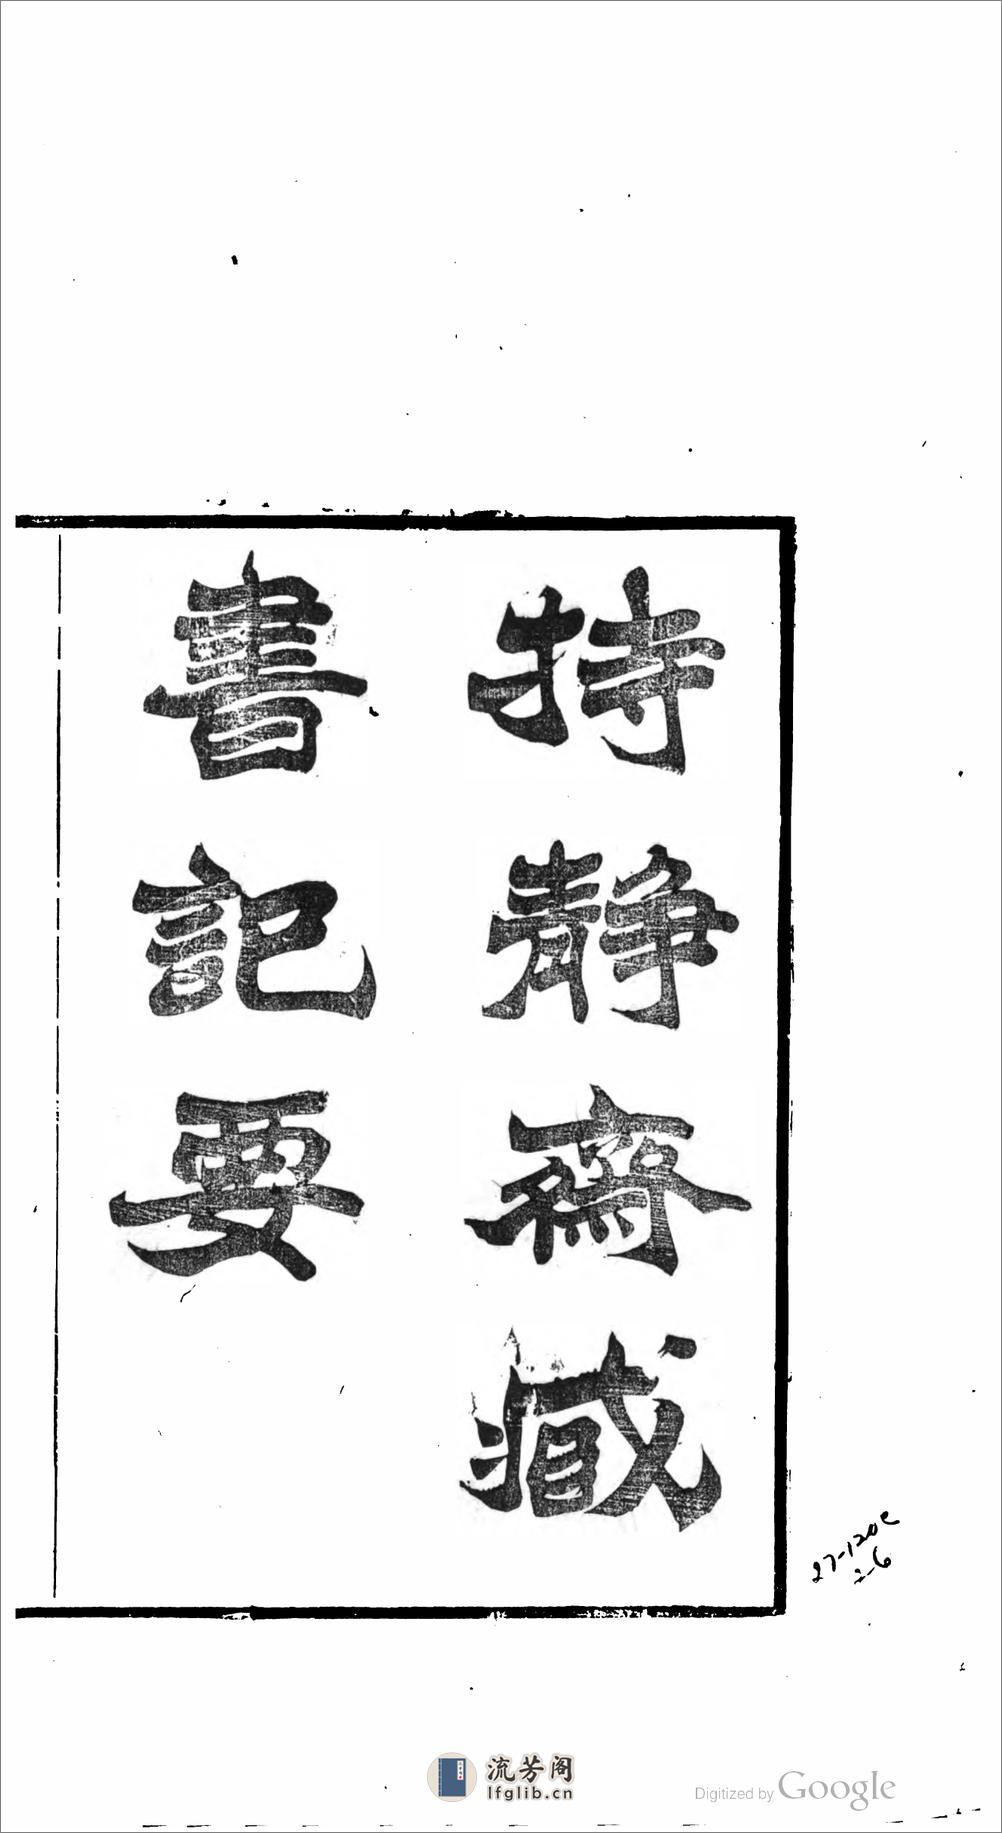 持靜齋藏
書記要
2-6
流芳阁
lfglib.cn
Digitized by Google